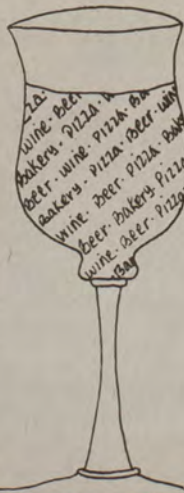 zza.
wine. Beer
Bakery. Pizza. W
Beer. wine. Pizza. Ba
Bakery. Pizza. Beer. wine
wine. Beer. Pizza. Bak
Beer. Bakery. Pizza
wine. Beer. Pizza
Ba